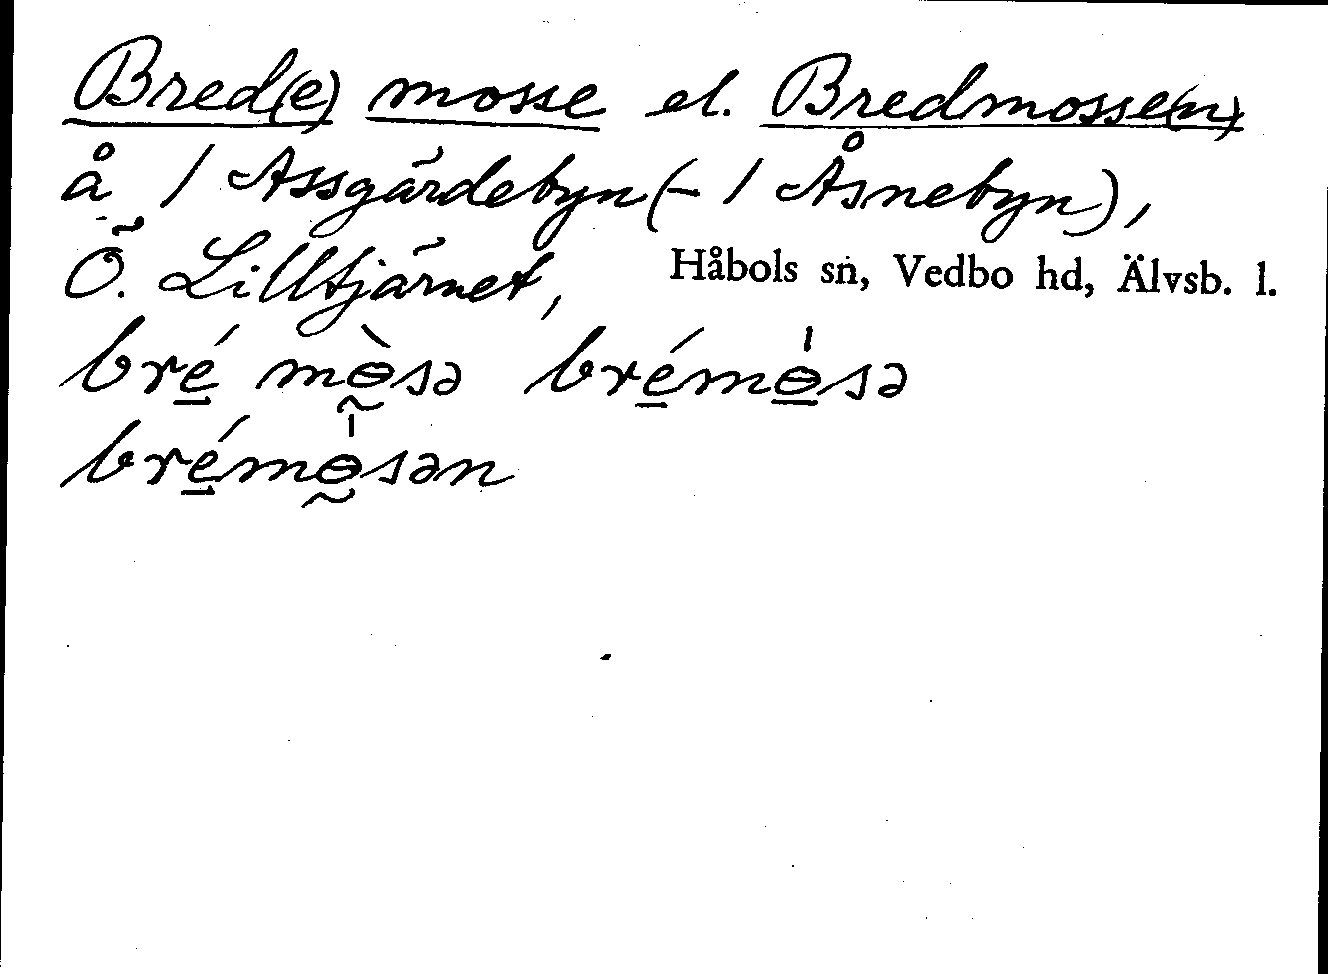 Bred(e) mosse el. Bredmosse(n)
å / Assgärdebyn (- / Åsnebyn),
Ö. Lilltjärnet, Håbols sn, Vedbo hd, Älvsb. l.
bré̱ mɵ̰̀sə bré̱mɵ̱̍sə
bré̱mɵ̰̍sən